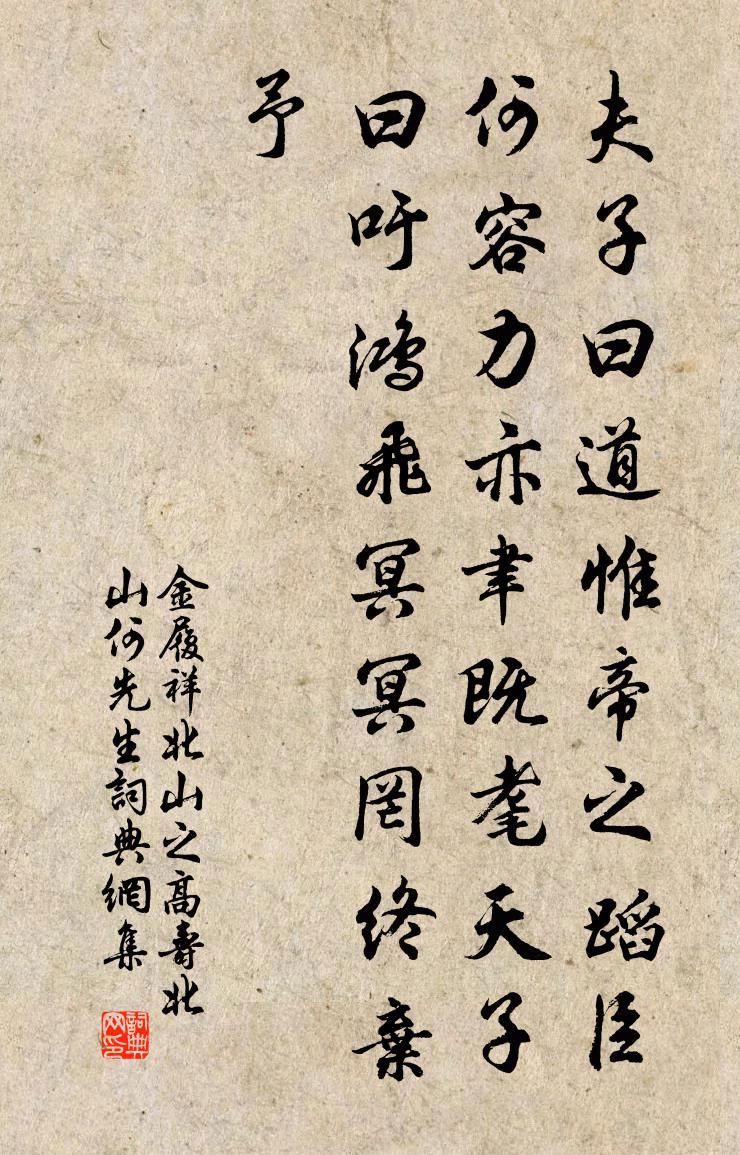 夫子曰道惟帝之蹈臣
何容力亦聿既耄天子
曰吁鴻飛冥冥罔終棄
予
金履祥北山之高壽北
山何先生詞典網集
詞典
网印